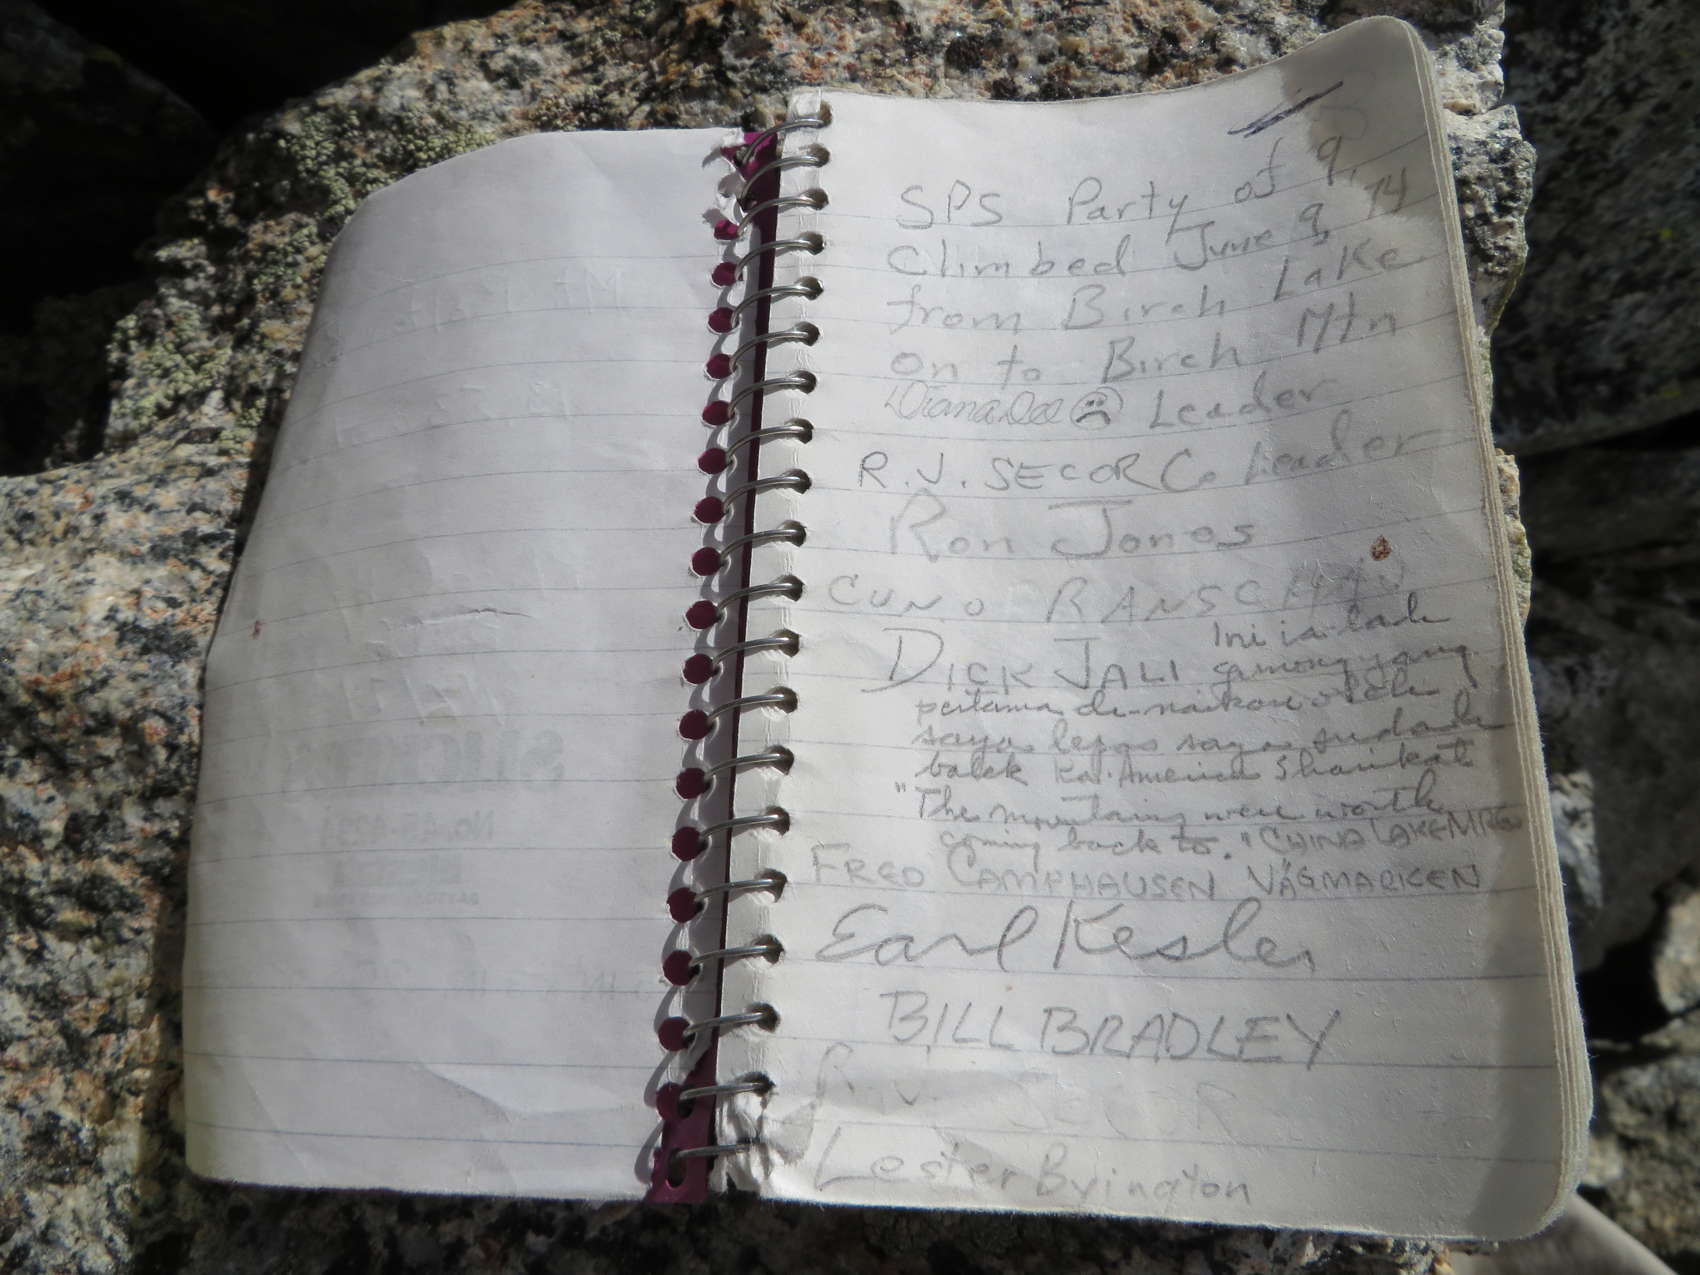 SPS Party of 9,
Climbed June 9, 74
from Birch Lake
on to Birch Mtn
Diana Dee Leader
R.J. SECOR Co Leader
Ron Jones
CUNO RANSCHAU
DICK JALI Ini ia-lah
gunong yang
pertama di-naikan oleh
saya lepas saya sudah
balek ka-America Sharikat
"The mountains were worth
coming back to." CHINA LAKE
FRED CAMPHAUSEN VÄGMARKEN
Earl Kesler
BILL BRADLEY
R.J. SECOR
Lester Byington